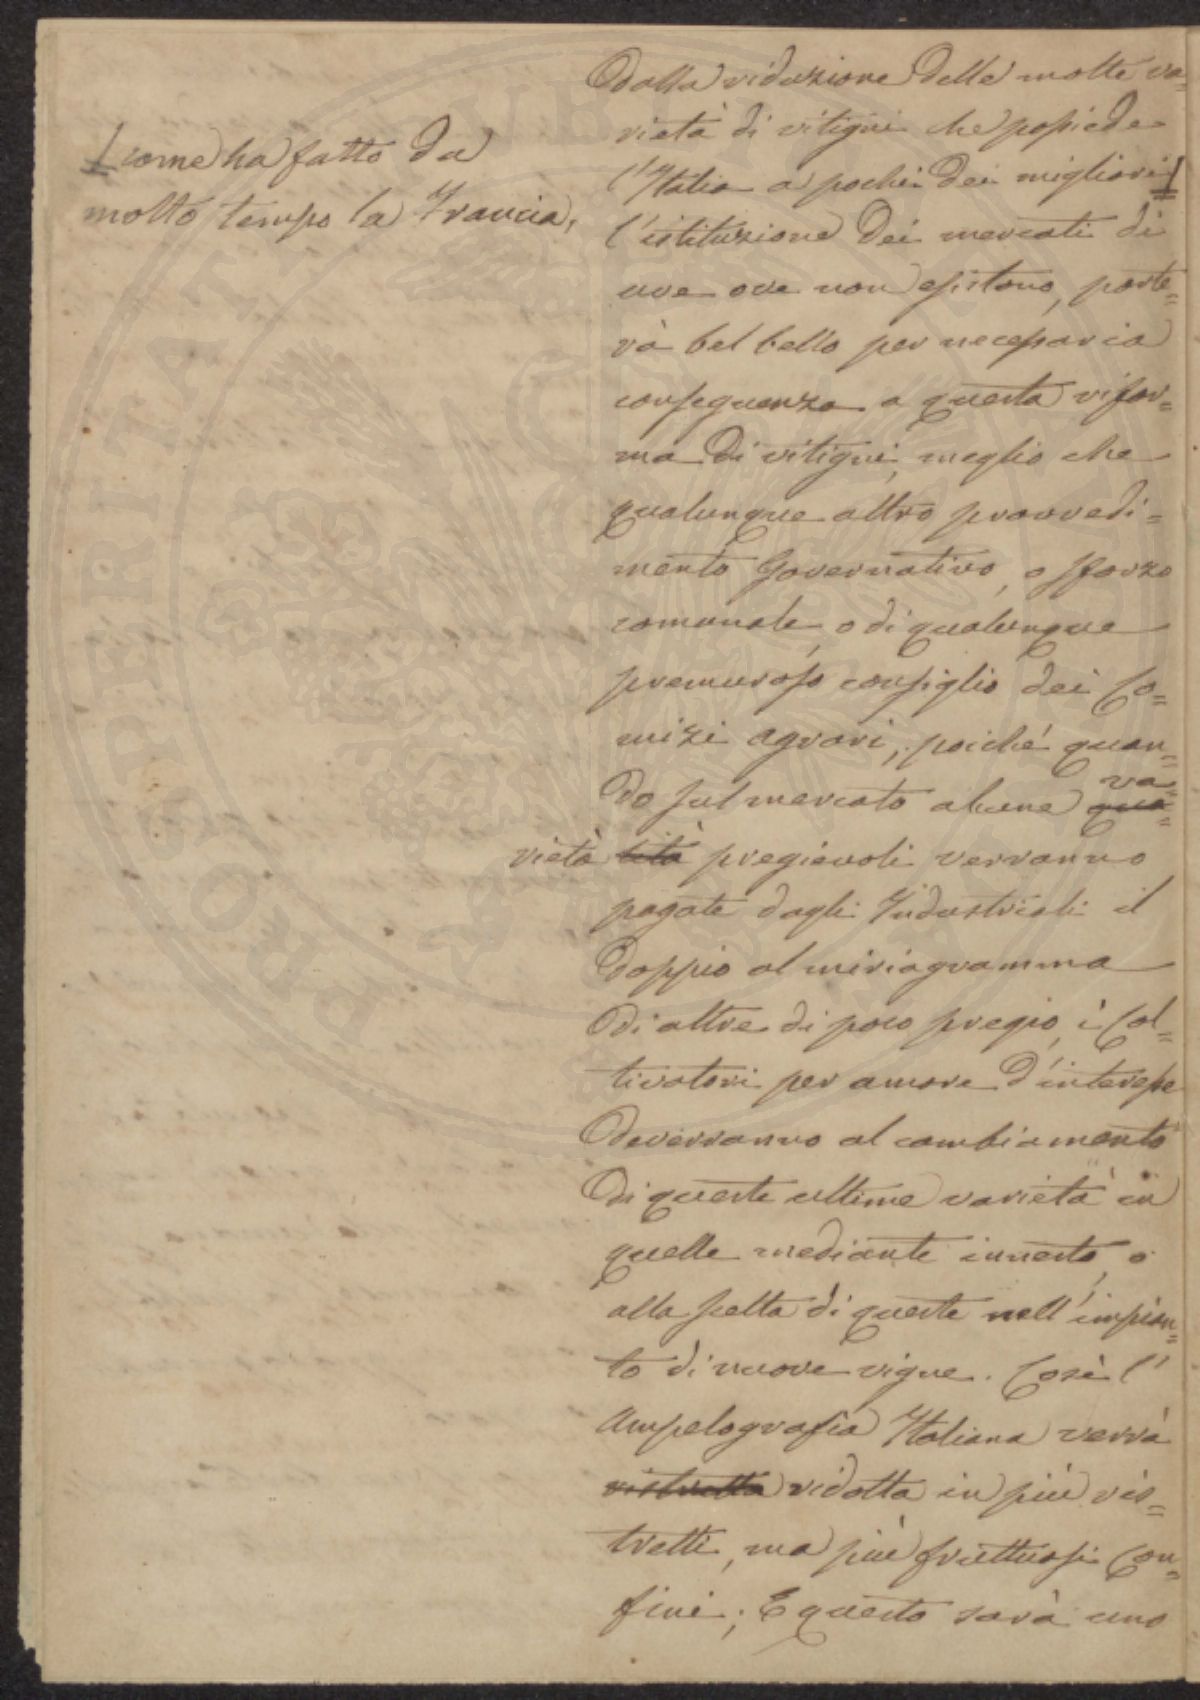 Dalla riduzione delle molte va=
rietà di vitigni che possiede
l'Italia a pochi dei migliori
come ha fatto da
molto tempo la Francia,
l'istituzione dei mercati di
uve ove non esistono, porte=
rà bel bello per necessaria
conseguenza a questa rifor=
ma di vitigni, meglio che
qualunque altro provvedi=
mento Governativo, o sforzo
comunale, o di qualunque
premuroso consiglio dei Co=
mizi agrari, poiché quan=
do sul mercato alcune qua= va=
rietà lità pregievoli verranno
pagate dagli Industriali il
doppio al miriagramma
di altre di poco pregio, i Col=
tivatori per amore d'interesse
deverranno al cambiamento
di queste ultime varietà in
quelle mediante innesto, o
alla scelta di queste nell'impian=
to di nuove vigne. Così l'
Ampelografia Italiana verrà
ristretta ridotta in più ris=
tretti, ma più fruttuosi con=
fini; E questo sarà uno
PROSPERITATI PUBLICAE